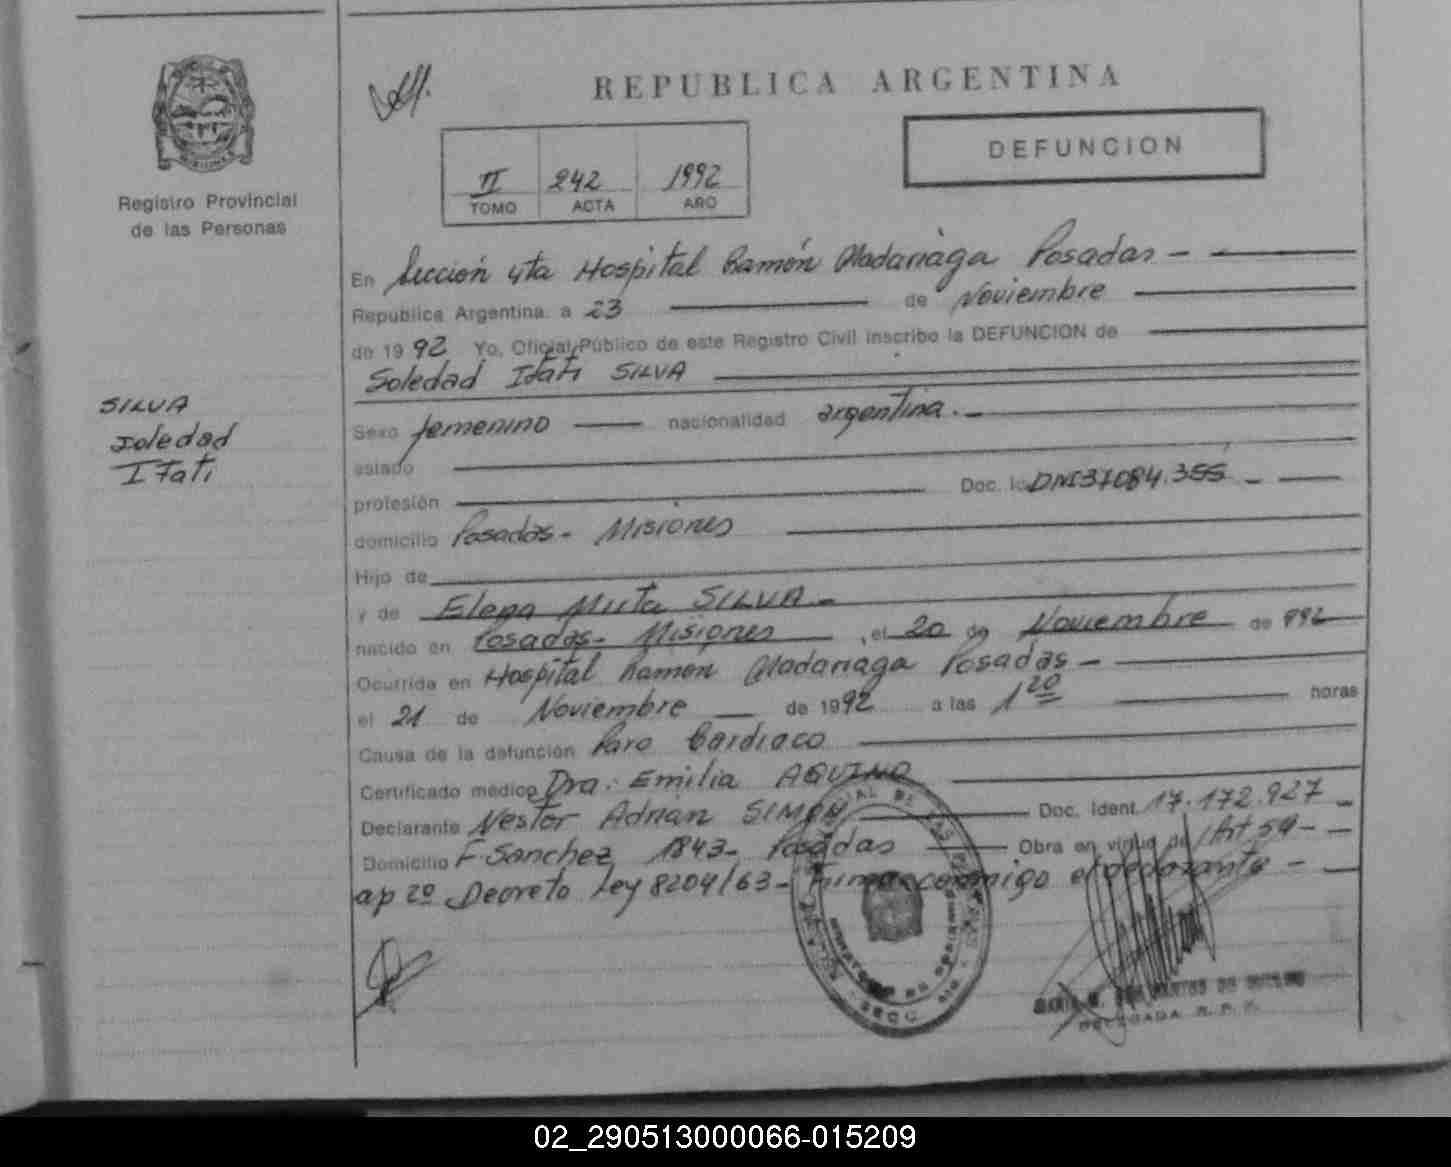 REPUBLICA ARGENTINA
DEFUNCION
II 242 1992
TOMO ACTA AÑO
Registro Provincial
de las Personas
SILVA
Soledad
Itati
En Sección 4ta Hospital Ramón Madariaga Posadas -
Republica Argentina a 23 de Noviembre
de 1992 Yo, Oficial Público de este Registro Civil inscribo la DEFUNCION de
Soledad Itati SILVA
Sexo femenino nacionalidad argentina. -
estado
profesión Doc. DNI 37084.355 -
domicilio Posadas - Misiones
Hijo de
y de Elena SILVA -
nacido en Posadas - Misiones, el 20 de Noviembre de 992
Ocurrida en Hospital Ramon Madariaga Posadas -
el 21 de Noviembre de 1992 a las 1 20 horas
Causa de la defunción Paro Cardiaco
Certificado médico Dra: Emilia AQUINO
Declarante Nestor Adrian SIMON Doc. Ident. 17.172.927 -
Domicilio F. Sanchez 1843 - Posadas Obra en virtud de Art 59 -
ap 2º Decreto Ley 8204/63 - Firma conmigo el declarante -
DELEGADA R. P. P.
02_290513000066-015209